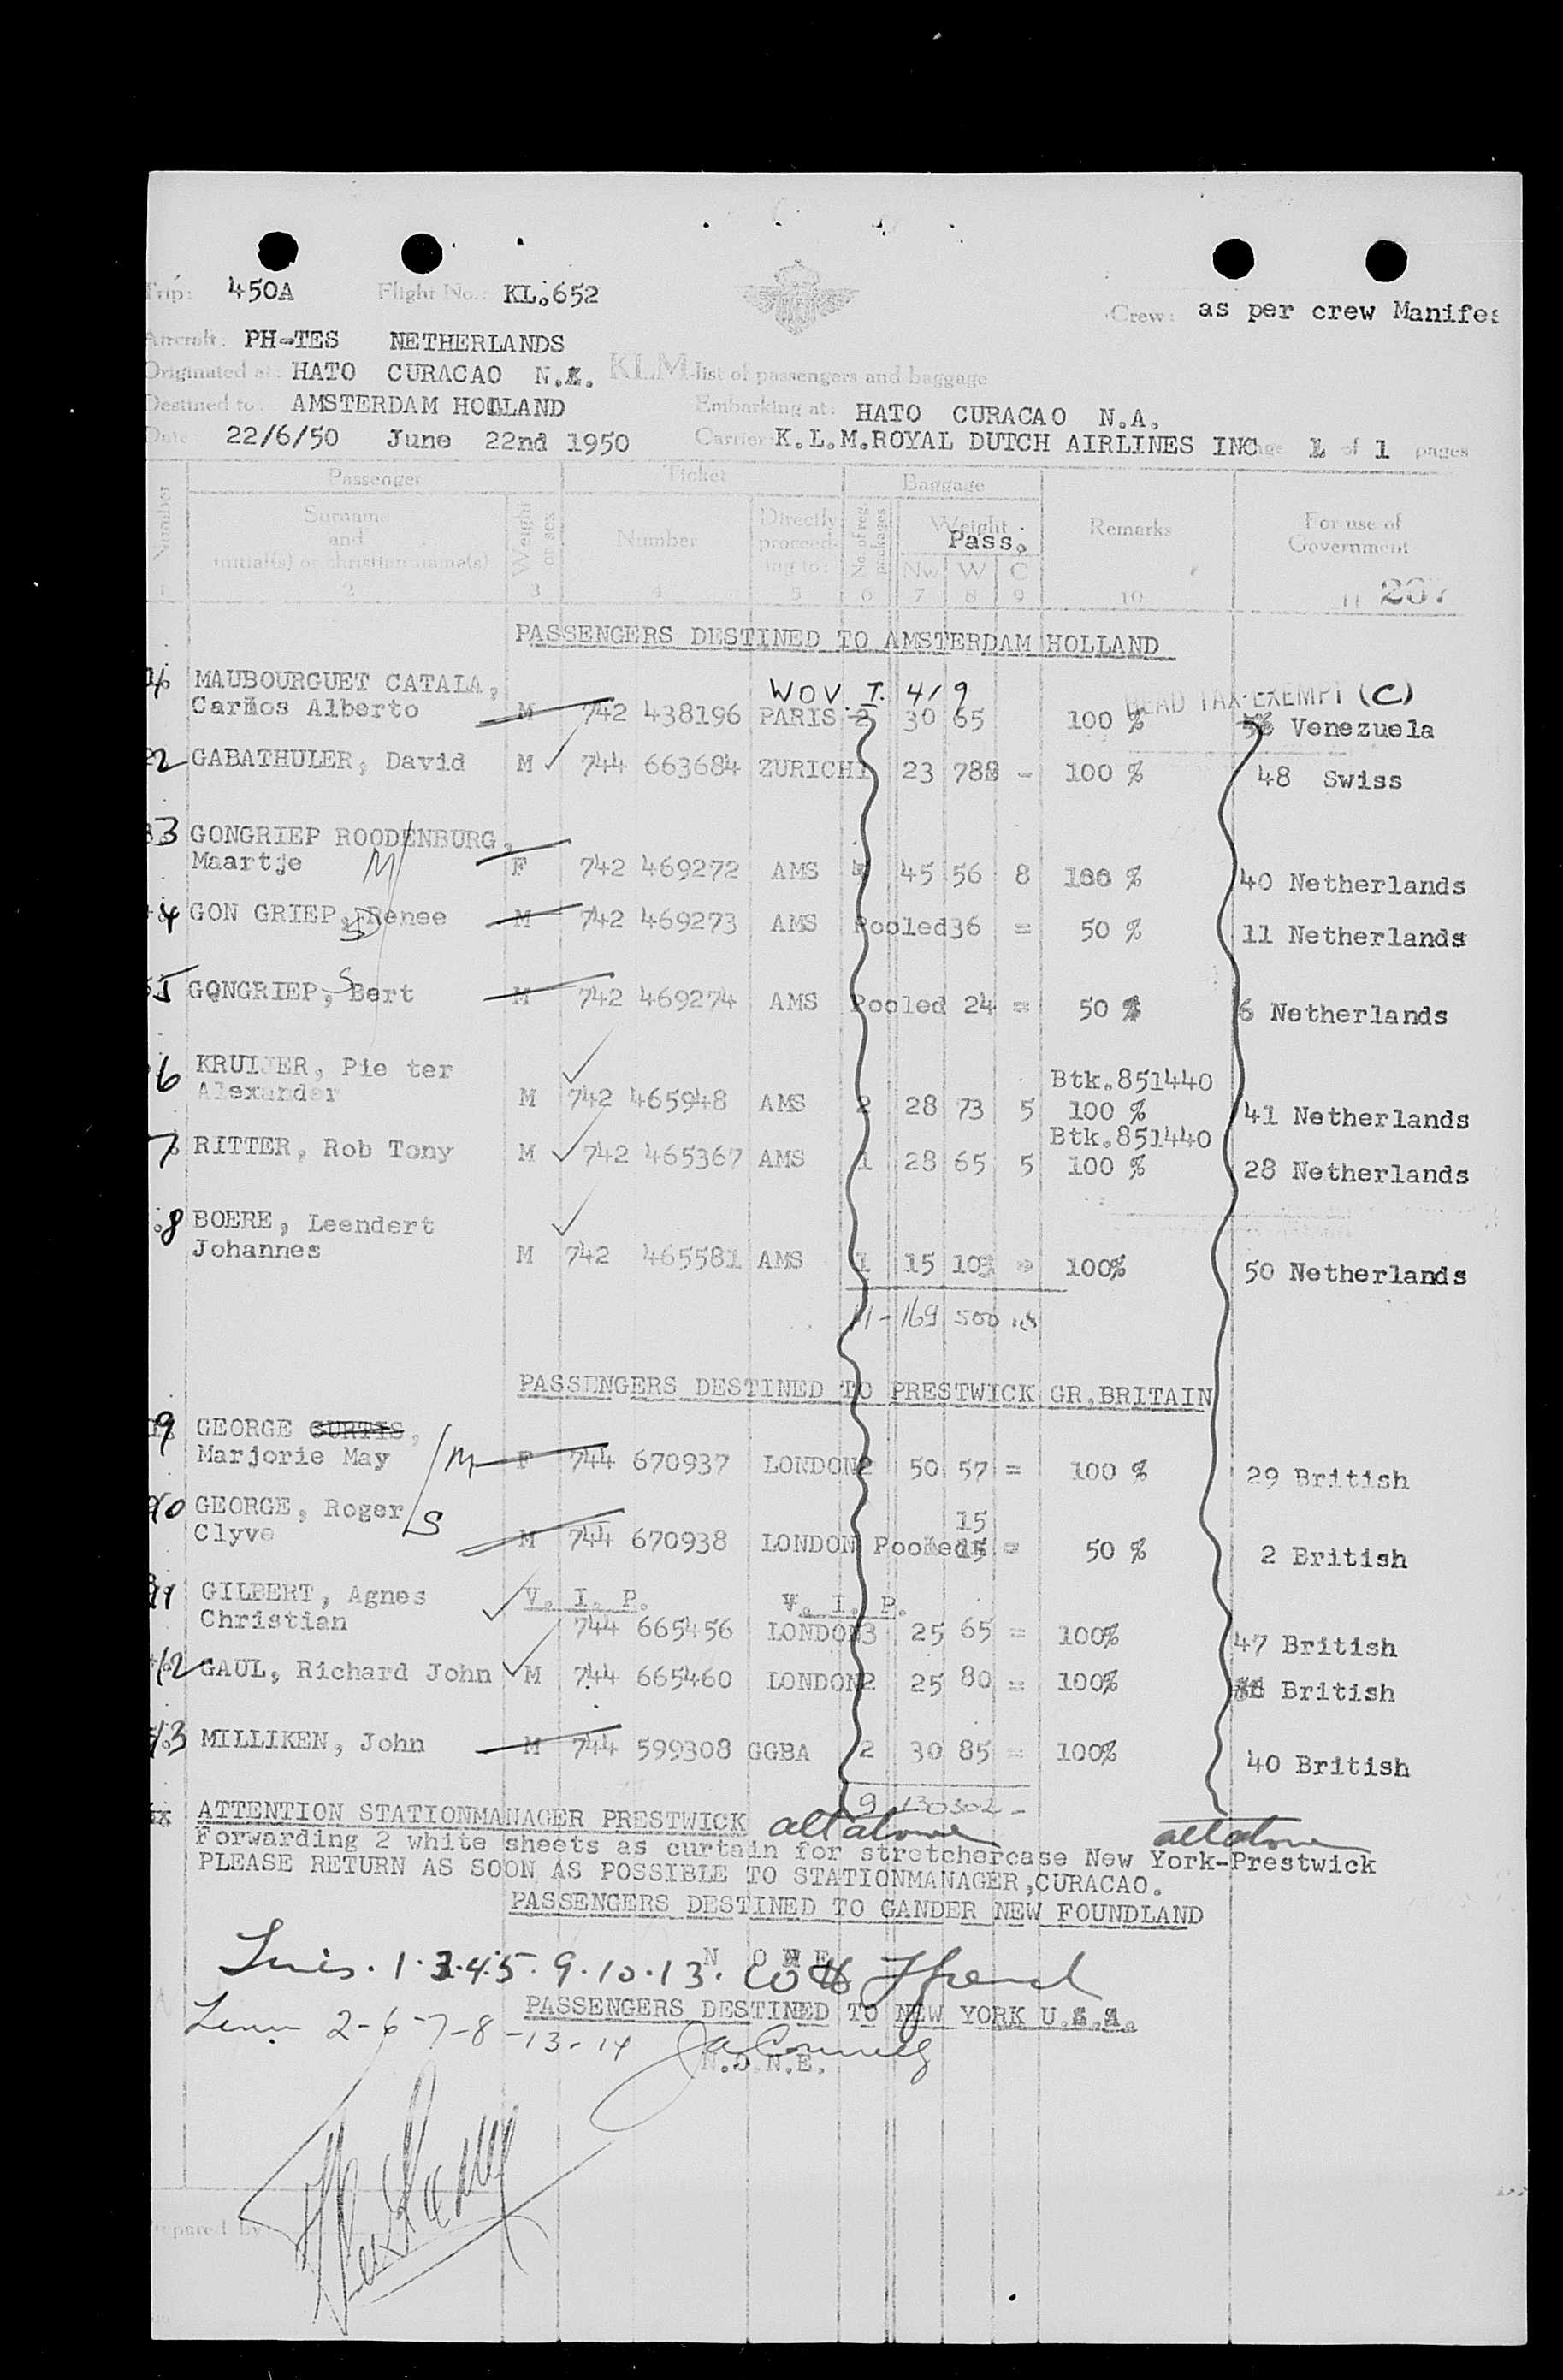 Trip: 450A Flight No.: KL.652
Crew: as per crew Manifes
Aircraft: PH-TES NETHERLANDS
Originated at: HATO CURACAO N.A. KLM-list of passengers and baggage
Destined to: AMSTERDAM HOLLAND Embarking at: HATO CURACAO N.A.
Date 22/6/50 June 22nd 1950 Carrier: K.L.M.ROYAL DUTCH AIRLINES INC 1 of 1 pages
Passenger Ticket Baggage
Number Surname and initial(s) or christian name(s) Weight or sex Number Directly proceeding to: No. of reg. packages Weight Pass. Remarks For use of Government
Nw W C
1 2 3 4 5 6 7 8 9 10 11 207
PASSENGERS DESTINED TO AMSTERDAM HOLLAND
MAUBOURGUET CATALA, WOV T. 4/9 HEAD TAX-EXEMPT (C)
Carlos Alberto M 742 438196 PARIS 2 30 65 100 % Venezuela
2 GABATHULER, David M 744 663684 ZURICH 1 23 788 - 100 % 48 Swiss
3 GONGRIEP ROODENBURG,
Maartje M F 742 469272 AMS 45 56 8 100 % 40 Netherlands
4 GON GRIEP, Renee S M 742 469273 AMS Pooled 36 = 50 % 11 Netherlands
5 GONGRIEP, Bert S M 742 469274 AMS Pooled 24 = 50 % 6 Netherlands
6 KRUIJER, Pie ter Btk.851440
Alexander M 742 465948 AMS 2 28 73 5 100 % 41 Netherlands
Btk.851440
7 RITTER, Rob Tony M 742 465367 AMS 1 28 65 5 100 % 28 Netherlands
8 BOERE, Leendert
Johannes M 742 465581 AMS 1 15 103 100% 50 Netherlands
11 - 169 500 18
PASSENGERS DESTINED TO PRESTWICK GR.BRITAIN
9 GEORGE CURTIS,
Marjorie May M F 744 670937 LONDON 2 50 57 = 100 % 29 British
10 GEORGE, Roger 15
Clyve S M 744 670938 LONDON Pooled 15 = 50 % 2 British
11 GILBERT, Agnes V. I. P. V. I. P.
Christian 744 665456 LONDON 3 25 65 = 100% 47 British
12 GAUL, Richard John M 744 665460 LONDON 2 25 80 = 100% British
13 MILLIKEN, John M 744 599308 GGBA 2 30 85 = 100% 40 British
9 130 302 -
ATTENTION STATIONMANAGER PRESTWICK all above all above
Forwarding 2 white sheets as curtain for stretchercase New York-Prestwick
PLEASE RETURN AS SOON AS POSSIBLE TO STATIONMANAGER,CURACAO.
PASSENGERS DESTINED TO GANDER NEW FOUNDLAND
N O N E
1.3.4.5.9.10.13.
PASSENGERS DESTINED TO NEW YORK U.S.A.
2-6-7-8-13-14
N.O.N.E.
Prepared by: